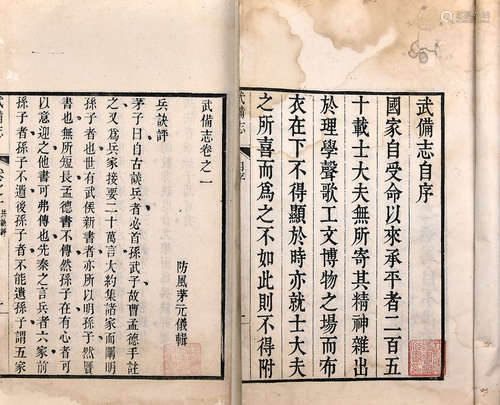 武備志自序
國家自受命以來承平者二百五
十載士大夫無所寄其精神雜出
於理學聲歌工文博物之場而布
衣在下不得顯於時亦就士大夫
之所喜而為之不如此則不得附
武備志
自序
武備志卷之一
防風茅元儀輯
兵訣評
茅子曰自古談兵者必首孫武子故曹孟德手註
之又為兵家接要二十萬言大約集諸家而闡明
孫子者也世有武侯新書者亦所以明孫子然贋
書也無所短長孟德書不傳然孫子在有心者可
以意迎之他書可弗傳也先秦之言兵者六家前
孫子者孫子不遺後孫子者不能遺孫子謂五家
武備志
卷之一
兵訣評